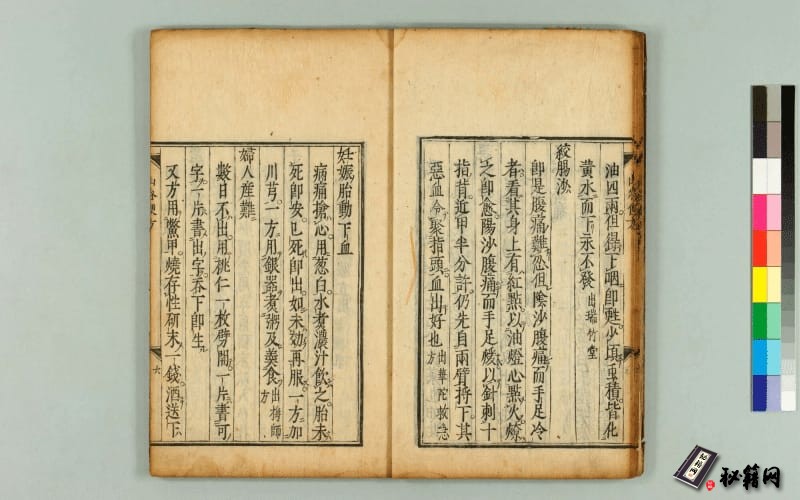 油四兩但鑷上咽即甦少頃虫積皆化
黃水而下永不發 出瑞竹堂
絞腸沙
即是腹痛難忍但陰沙腹痛而手足冷
者看其身上有紅點以油燈心點火燎
之即愈陽沙腹痛而手足煖以針刺十
指背近甲半分許仍先自兩臂捋下其
惡血令聚指頭血出好也 出華陀救急方
妊娠胎動下血
病痛搶心用葱白水煮濃汁飲之胎未
死即安已死即出如未効再服一方加
川芎一方用銀器煮粥及羹食 出梅師方
婦人産難
數日不出用桃仁一枚劈開一片書可
字一片書出字吞下即生
又方用鱉甲燒存性研末一錢酒送下
六
秘籍网